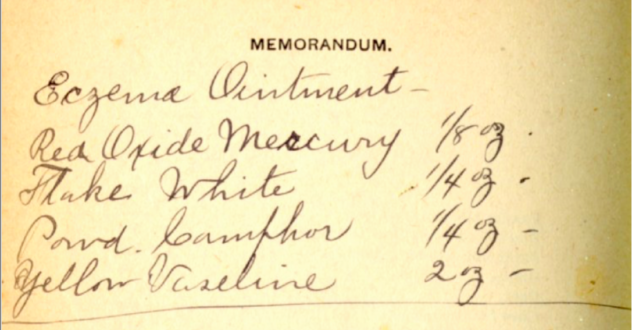 MEMORANDUM.
Eczema Ointment –
Red Oxide Mercury 1/8 oz .
Flake White 1/4 oz -
Powd. Camphor 1/4 oz –
Yellow Vaseline 2 oz –